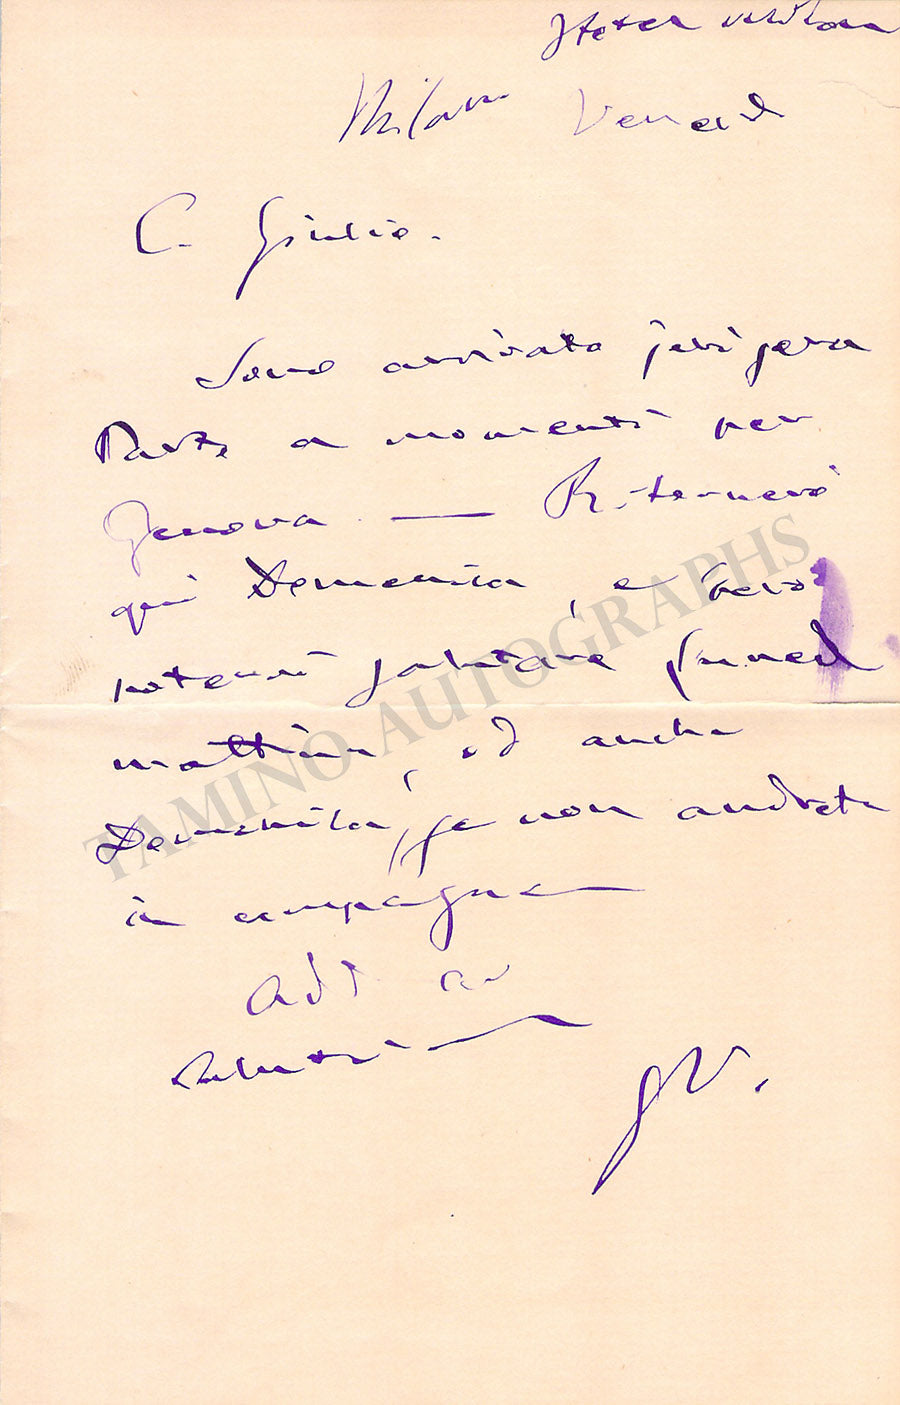 Hotel Milan
Milano Venerdì
C. Giulio.
Sono arrivato jeri sera
Parto a momenti per
Genova — Ritornerò
qui Domenica, e
potervi salutare Lunedì
mattina, od anche
Domenica, se non andrete
in campagna
Add. av
GV.
TAMINO AUTOGRAPHS